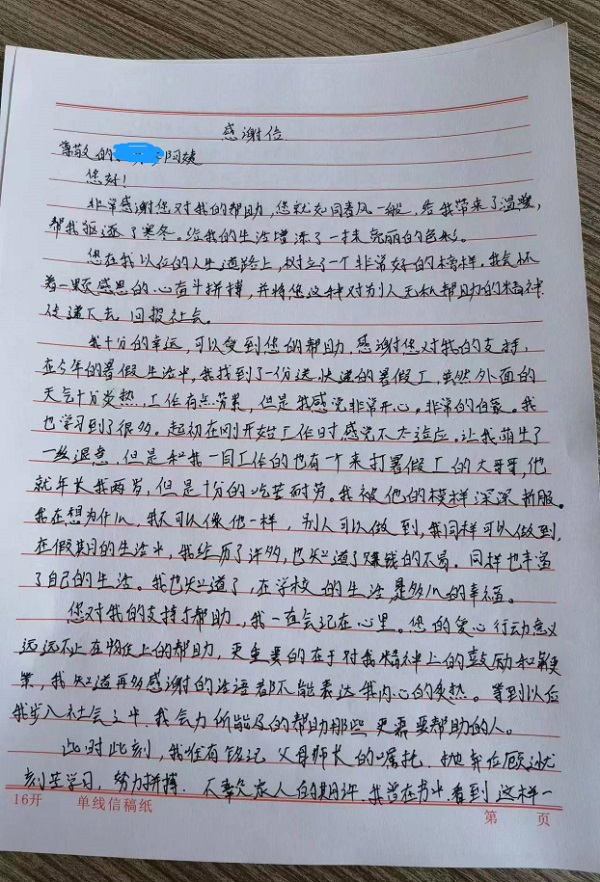 感谢信
尊敬的 阿姨
您好!
非常感谢您对我的帮助,您就如同春风一般,给我带来了温暖,
帮我驱逐了寒冬。给我的生活增添了一抹亮丽的色彩。
您在我以后的人生道路上,树立了一个非常好的榜样。我会怀
着一颗感恩的心奋斗拼搏,并将您这种对别人无私帮助的精神
传递下去 回报社会。
我十分的幸运,可以受到您的帮助,感谢您对我的支持,
在今年的暑假生活中,我找到了一份送快递的暑假工,虽然外面的
天气十分炎热,工作有点劳累,但是我感觉非常开心。非常的自豪。我
也学习到了很多。起初在刚开始工作时感觉不太适应。让我萌生了
一丝退意,但是和我一同工作的也有一个来打暑假工的大哥哥,他
就年长我两岁,但是十分的吃苦耐劳。我被他的模样深深折服。
我在想为什么,我不可以像他一样,别人可以做到,我同样可以做到,
在假期的生活中,我经历了许多,也知道了赚钱的不易。同样也丰富
了自己的生活。我也知道了,在学校的生活是多么的幸福。
您对我的支持与帮助,我一直会记在心里。您的爱心行动意义
远远不止在物质上的帮助,更重要的在于对我精神上的鼓励和鞭
策,我知道再多感谢的话语都不能表达我内心的炙热。等到以后
我步入社会之中,我会力所能及的帮助那些更需要帮助的人。
此时此刻,我唯有铭记父母师长的嘱托,抛弃 顾
刻苦学习,努力拼搏.不辜负家人的期许.我曾在书中看到这样一
16开 单线信稿纸 第 页